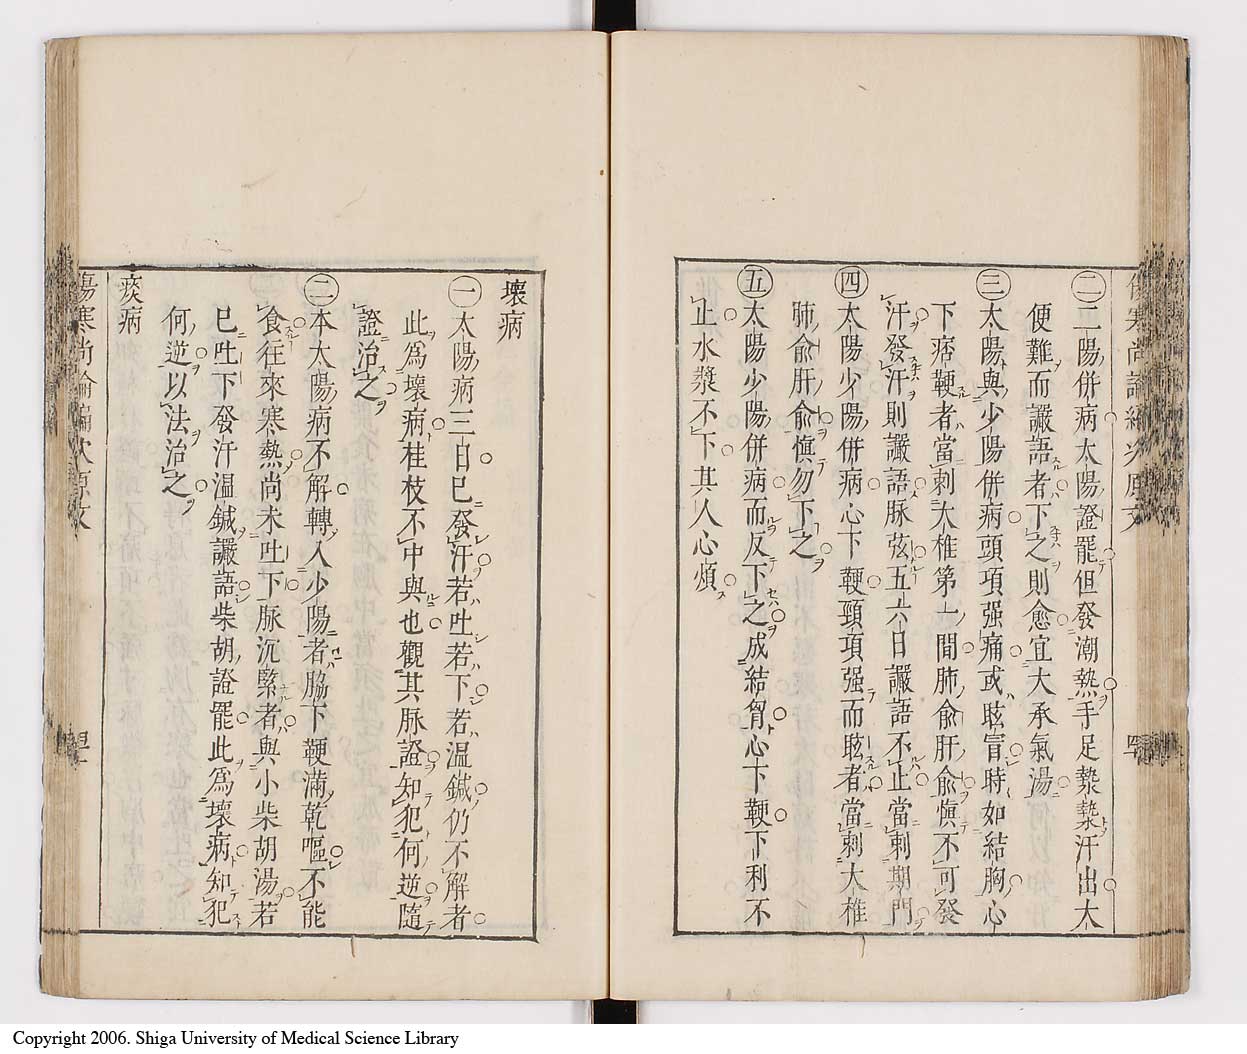 ㊁二陽併病太陽證罷但發潮熱手足漐漐汗出大
便難而讝語者下之則愈宜大承氣湯
㊂太陽與少陽併病頭項强痛或眩冒時如結胸心
下痞鞕者當刺大椎第一間肺俞肝俞慎不可發
汗發汗則讝語脉弦五六日讝語不止當刺期門
㊃太陽少陽併病心下鞕頸項强而眩者當刺大椎
肺俞肝俞慎勿下之
㊄太陽少陽併病而反下之成結胷心下鞕下利不
止水漿不下其人心煩
壊病
㊀太陽病三日已發汗若吐若下若温鍼仍不解者
此爲壊病桂枝不中與也觀其脉證知犯何逆隨
證治之
㊁本太陽病不解轉入少陽者脇下鞕滿乾嘔不能
食往來寒熱尚未吐下脉沉緊者與小柴胡湯若
已吐下發汗温鍼讝語柴胡證罷此爲壊病知犯
何逆以法治之
痰病
傷寒尚論編次原文
Copyright 2006. Shiga University of Medical Science Library